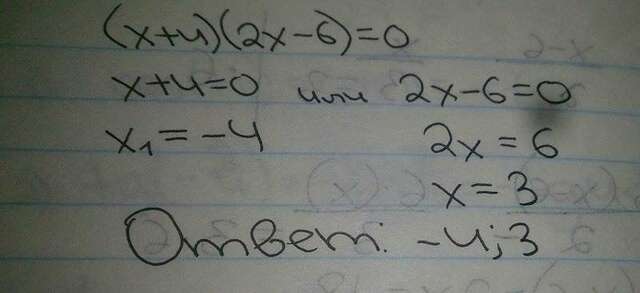 (x+4)(2x-6)=0
x+4=0 или 2x-6=0
x₁=-4 2x=6
x=3
Ответ: -4;3